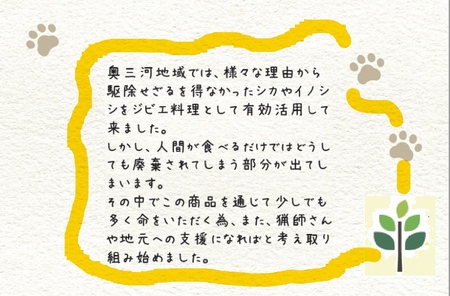 奥三河地域では、様々な理由から
駆除せざるを得なかったシカやイノシ
シをジビエ料理として有効活用して
来ました。
しかし、人間が食べるだけではどうし
ても廃棄されてしまう部分が出てし
まいます。
その中でこの商品を通じて少しでも
多く命をいただく為、また、猟師さん
や地元への支援になればと考え取り
組み始めました。